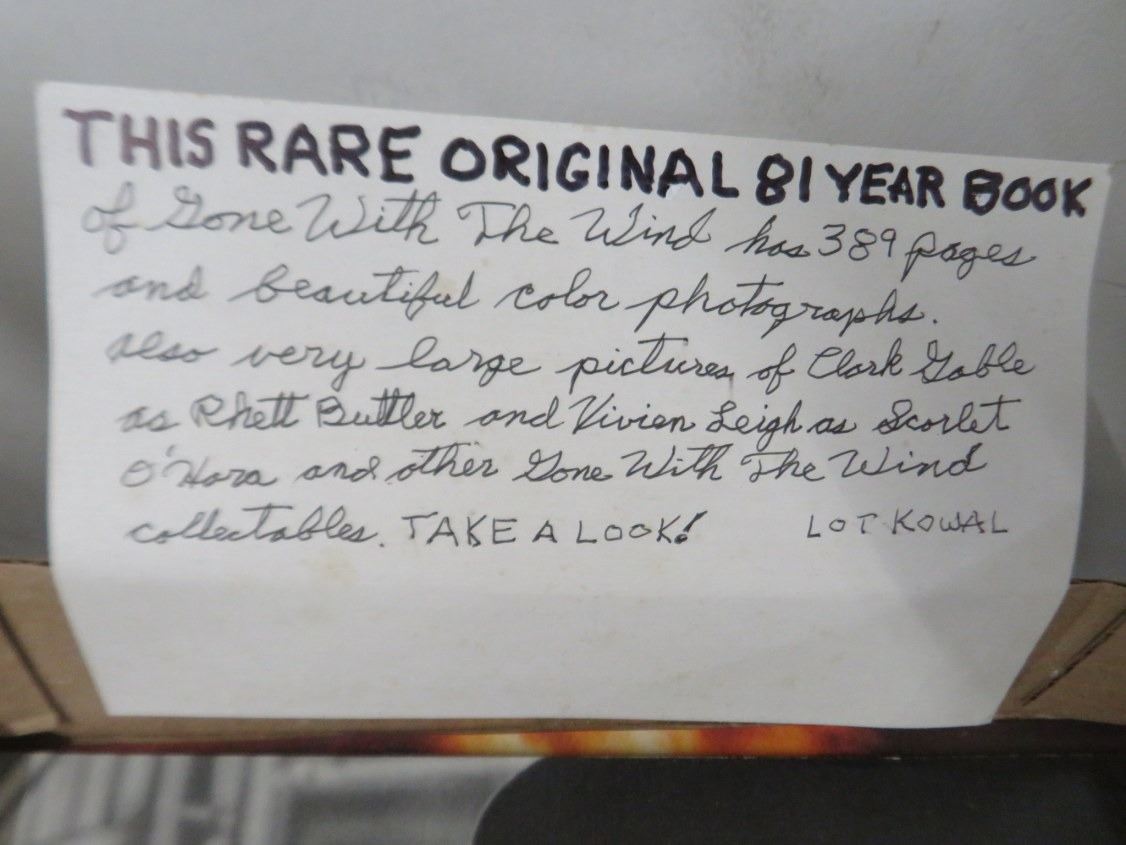 THIS RARE ORIGINAL 81 YEAR BOOK
of Gone With The Wind has 389 pages
and beautiful color photographs.
also very large pictures of Clark Gable
as Rhett Buttler and Vivien Leigh as Scarlet
O'Hara and other Gone With The Wind
collectables. TAKE A LOOK! LOT KOWAL